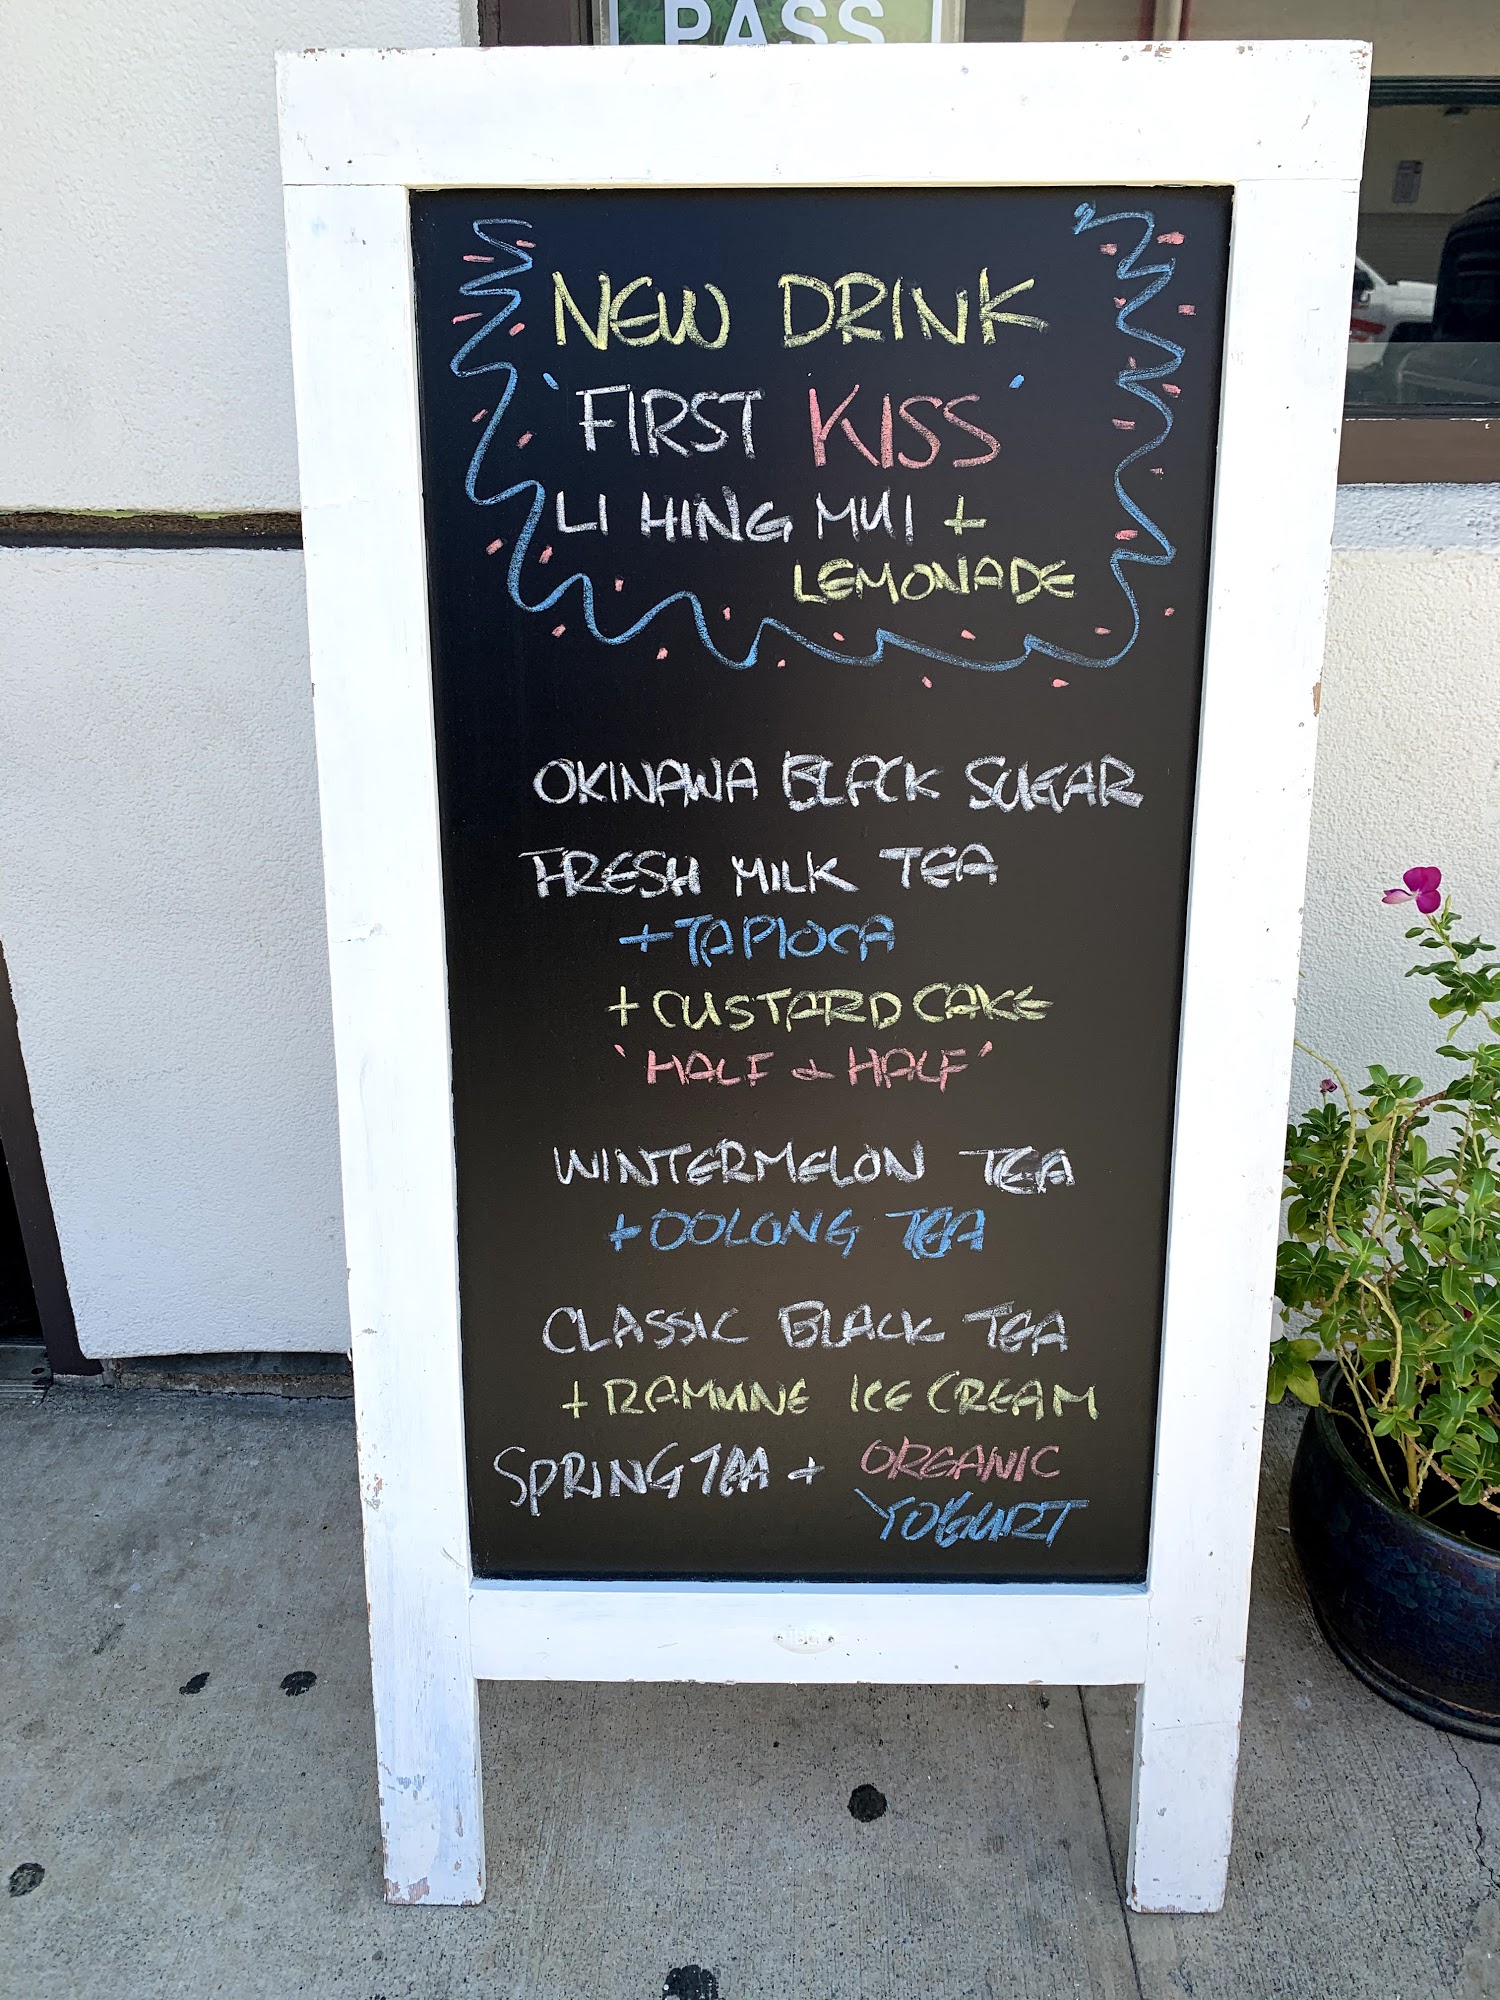 PASS
NEW DRINK
'FIRST KISS'
LI HING MUI +
LEMONADE
OKINAWA BLACK SUGAR
FRESH MILK TEA
+TAPIOCA
+CUSTARD CAKE
'HALF & HALF'
WINTERMELON TEA
+OOLONG TEA
CLASSIC BLACK TEA
+RAMUNE ICE CREAM
SPRING TEA + ORGANIC
YOGURT